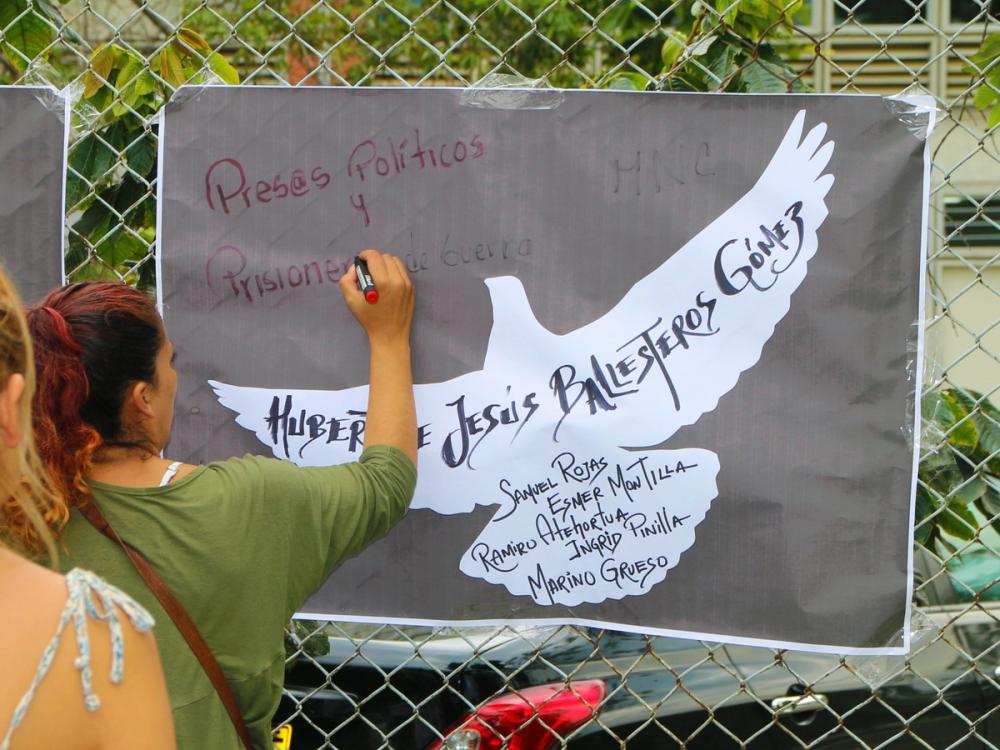 Pres@s Políticos
y
Prisioner de Guerra
MNC
HUBER E JESÚS BALLESTEROS GÓMEZ
SAMUEL ROJAS
ESMER MONTILLA
RAMIRO ATEHORTUA
INGRID PINILLA
MARINO GRUESO